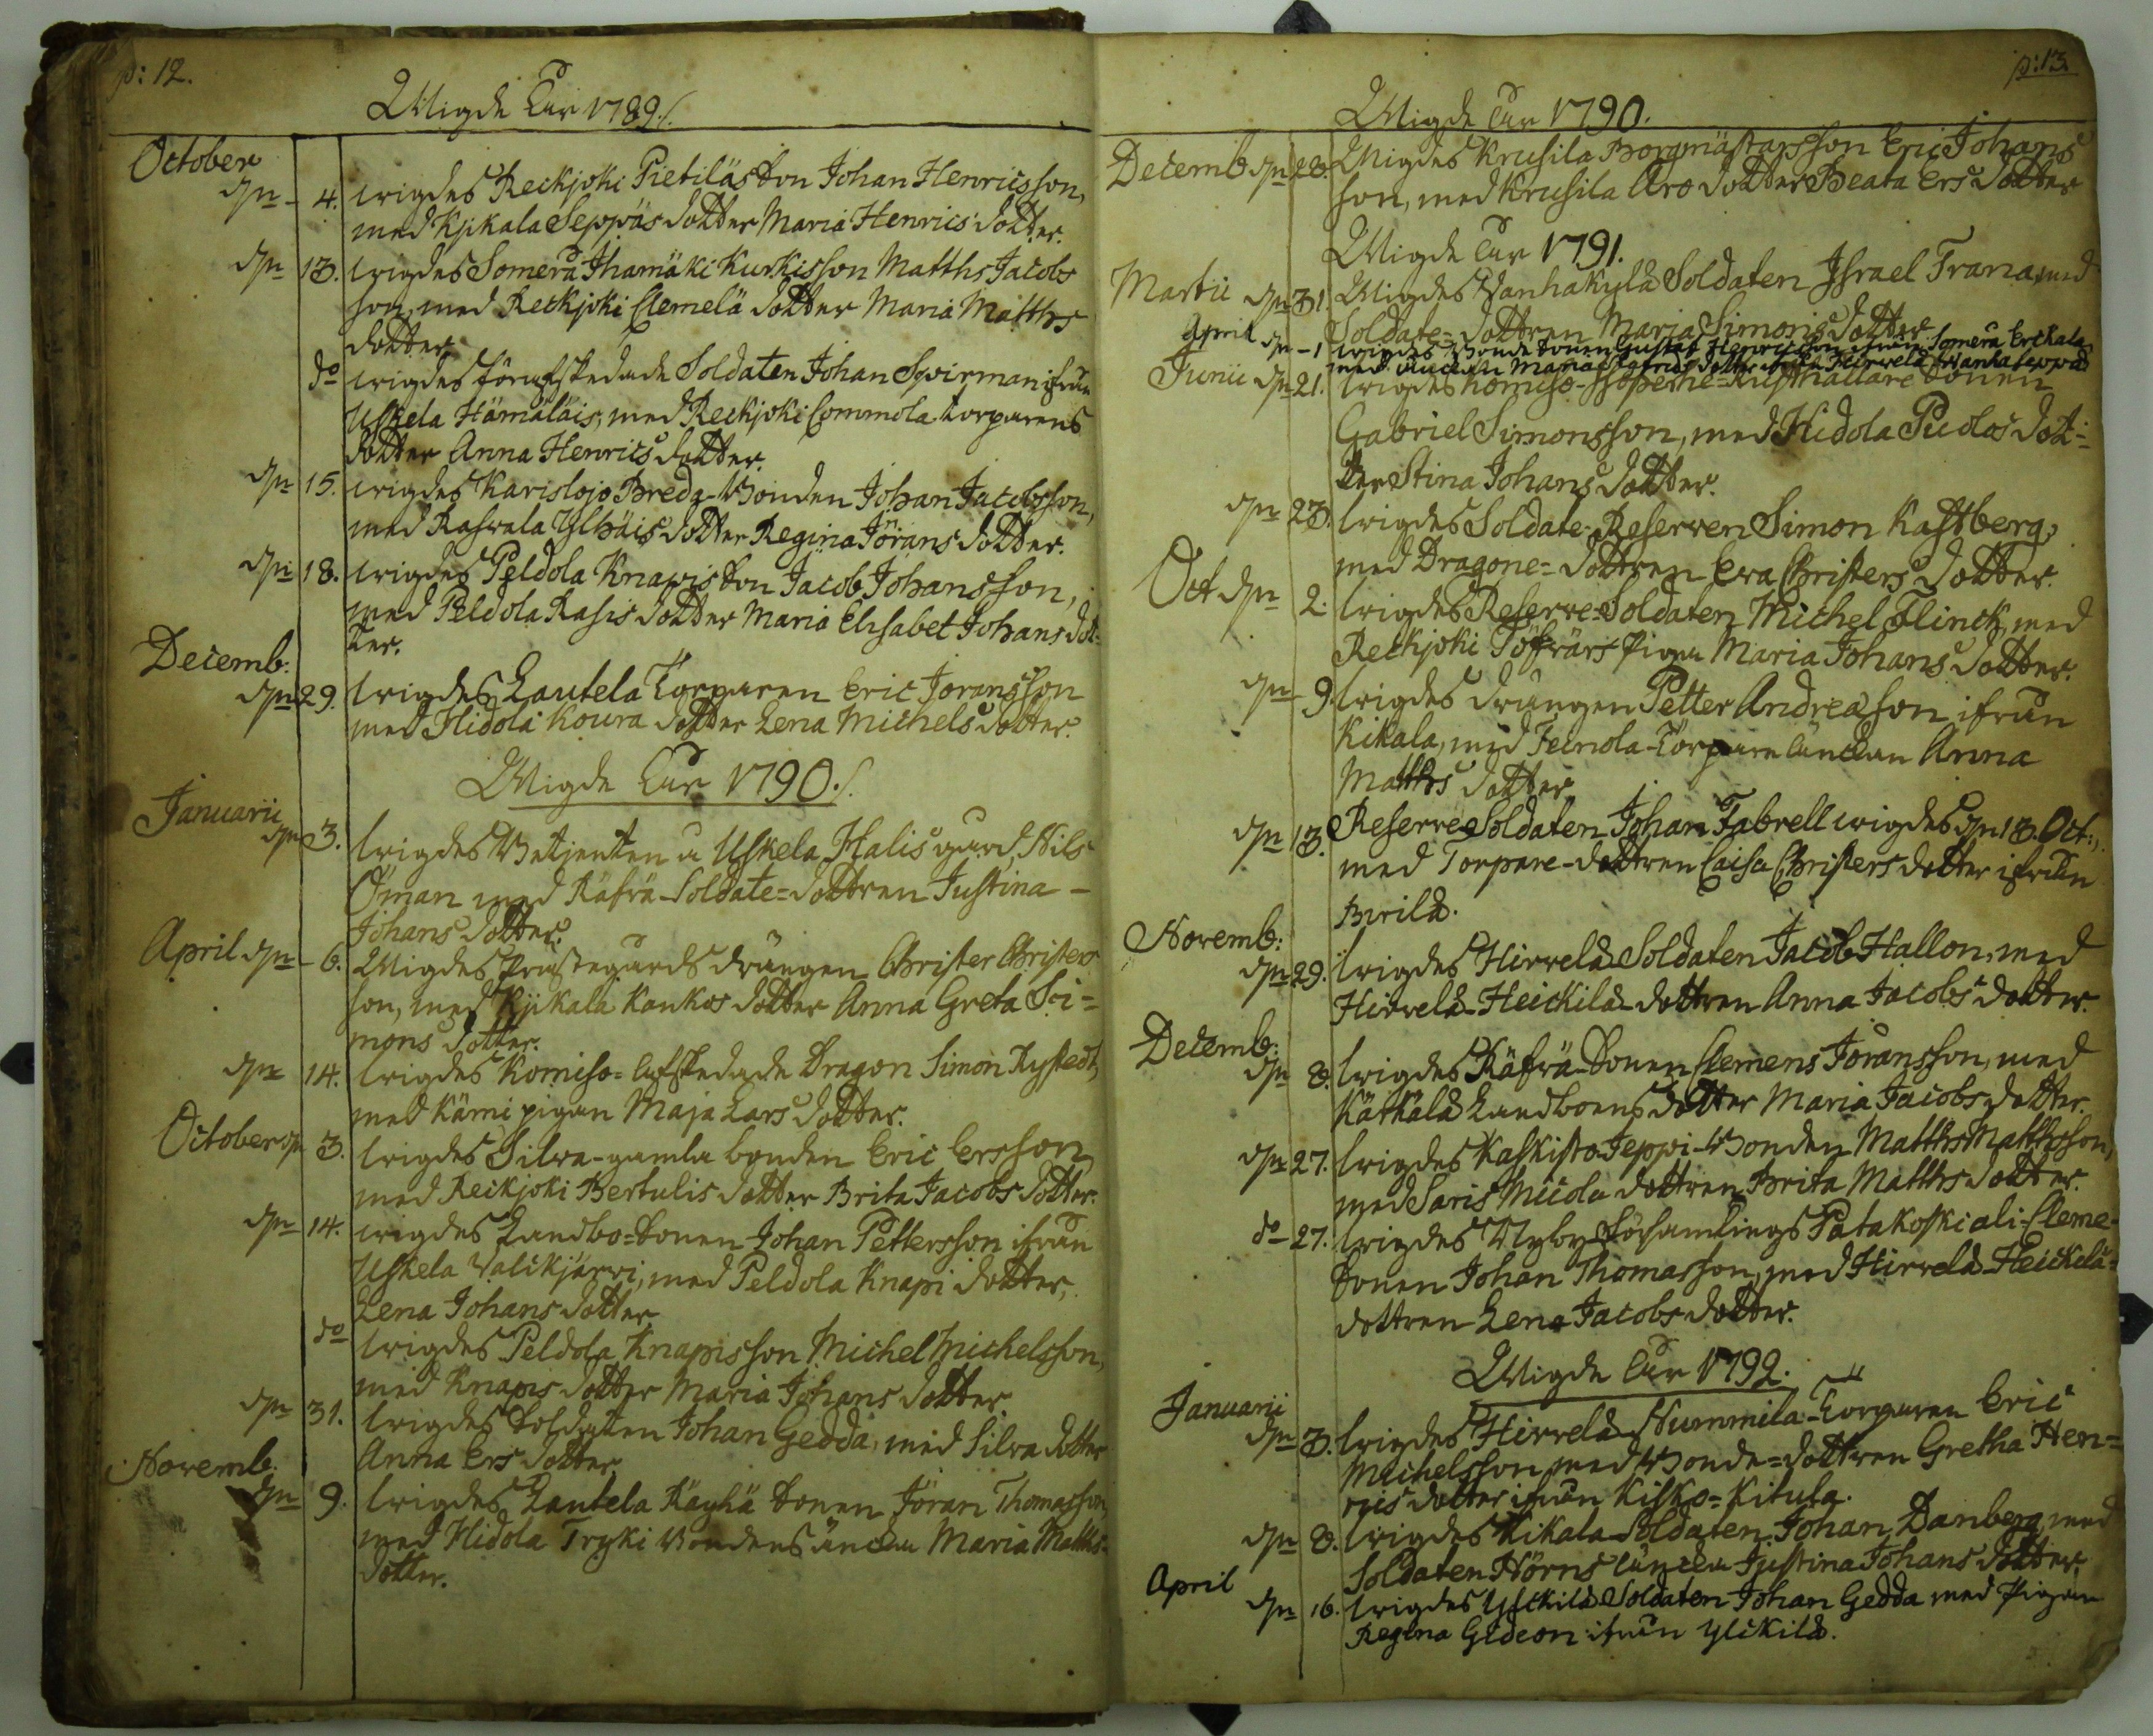 p: 12.
Wigde Åhr 1789./.
October
dn 4. wigdes Reckjoki Pietiläs Son Johan Henricsson,
med Kjikala Seppäs dotter Maria Henrics dotter.
dn 13. wigdes Somerå Ihamäki Kurkis son Matths Jacobs
son, med Reckjoki Clemelä dotter Maria Matths
dotter
do wigdes förafskedade Soldaten Johan Sqvirman ifrån
Uskela Hämäläis, med Reckjoki Commola torparens
dotter Anna Henrics dotter.
dn 15. wigdes Karislojo Breda-Bonden Johan Jacobsson,
med Raswala Ylhäis dotter Regina Jörans dotter.
dn 18. wigdes Peldola Knapis Son Jacob Johansson,
med Peldola Rasis dotter Maria Elisabet Johans dot-
ter.
Decemb:
dn 29. wigdes Lautela Torparen Eric Joransson
med Hidola Koura dotter Lena Michels dotter.
Wigde Åhr 1790./.
Januarii
dn 3. wigdes Betjenten å Uskela Halis gård, Nils
Öman med Räfrä-Soldate-dottren Justina
Johans dotter.
April dn 6. Wigdes Prästegårds drängen Christer Christers
son, med Kjikala Kankos dotter Anna Greta Si=
mons dotter.
dn 14. wigdes Komiso= afskedade Dragon Simon Rystedt,
med Kärni pigan Maja Lars dotter.
October dn 3. wigdes Silva-gamla bonden Eric Ersson
med Reckjoki Bertulis dotter Brita Jacobs dotter.
dn 14. wigdes Landbo=Sonen Johan Pettersson ifrån
Uskela Valikjärvi, med Peldola Knapi dotter,
Lena Johans dotter
do wigdes Peldola Knapis son Michel Michelsson,
med Knapis dotter Maria Johans dotter.
dn 31. wigdes Soldaten Johan Gedda, med Silva dotter
Anna Ers dotter
Novemb.
dn 9. wigdes Lautela Räyhä Sonen Jöran Thomasson,
med Hidola Tryki Bondens änka Maria Matths-
dotter.
p: 13.
Wigde Åhr 1790.
Decemb dn 28. Wigdes Krusila Borgmästars son Eric Johans
son, med Krusila Aro dotter Beata Ers dotter
Wigde Åhr 1791.
Martii dn 31. Wigdes Vanhakylä Soldaten Israel Trana, med
Soldate-dottren Maria Simons dotter
April dn 1 wigdes Bonde Sonen Gustaf Henricsson ifrån Somerå Erkala,
med änckan Maria dotter Hirvelä Wanhaseppä
Junii dn 21. wigdes Komiso-Isoperhe-Rusthållare Sonen
Gabriel Simonsson, med Hidola Pudas dot=
ter Stina Johans dotter.
dn 23. wigdes Soldate-Reserven Simon Kastberg,
med Dragone=dottren Eva Christers dotter.
Oct dn 2. wigdes Reserve-Soldaten Michel Flinck, med
Reckjoki Pigan Maria Johans dotter.
dn 9. wigdes drängen Petter Andreason ifrån
Kikala, med Feinola-Torpare änckan Anna
Matths dotter
dn 13. Reserve Soldaten Johan Fabrell wigdes dn 13. Oct:,
med Torpare-dottren Caisa Christers dotter ifrån
Novemb:
dn 29. wigdes Hirvelä Soldaten Jacob Hallon, med
Hirvelä-Heickilä-dottren Anna Jacobs dotter.
Decemb:
dn 8. wigdes Räfrä-Sonen Clemens Joransson, med
Kätkälä Landboens dotter Maria Jacobs dotter.
dn 27. wigdes Kaskisto-Seppi-Bonden Matths Matthsson,
med Saris Micola dottren Brita Matths dotter.
do 27. wigdes Nyby Församlings Patakoski ali-Cleme-
Sonen Johan Thomasson, med Hirvelä-Heickelä-
dottren Lena Jacobs dotter.
Wigde Åhr 1792.
Januarii
dn 3. wigdes Hirvelä Nummila-Torparen Eric
Michelsson med Bonde=dottren Gretha Hen=
rics dotter ifrån Kisko=Kitula.
dn 8. wigdes Kikala Soldaten Johan Danberg, med
Soldaten Hörns änka Justina Johans dotter.
April
dn 16. wigdes Ylikilä Soldaten Johan Gedda med Pigan
Regina Gideon ifrån Ylikilä.